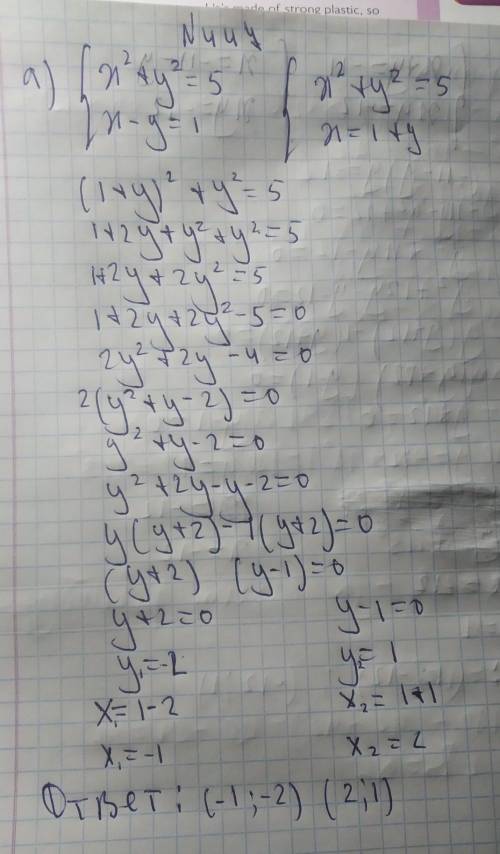 made of strong plastic, so
N444
а) { x² + y² = 5 { x² + y² = 5
x - y = 1 x = 1 + y
(1 + y)² + y² = 5
1 + 2y + y² + y² = 5
1 + 2y + 2y² = 5
1 + 2y + 2y² - 5 = 0
2y² + 2y - 4 = 0
2(y² + y - 2) = 0
y² + y - 2 = 0
y² + 2y - y - 2 = 0
y(y + 2) - 1(y + 2) = 0
(y + 2) (y - 1) = 0
y + 2 = 0 y - 1 = 0
y₁ = -2 y₂ = 1
x₁ = 1 - 2 x₂ = 1 + 1
x₁ = -1 x₂ = 2
Ответ: (-1; -2) (2; 1)